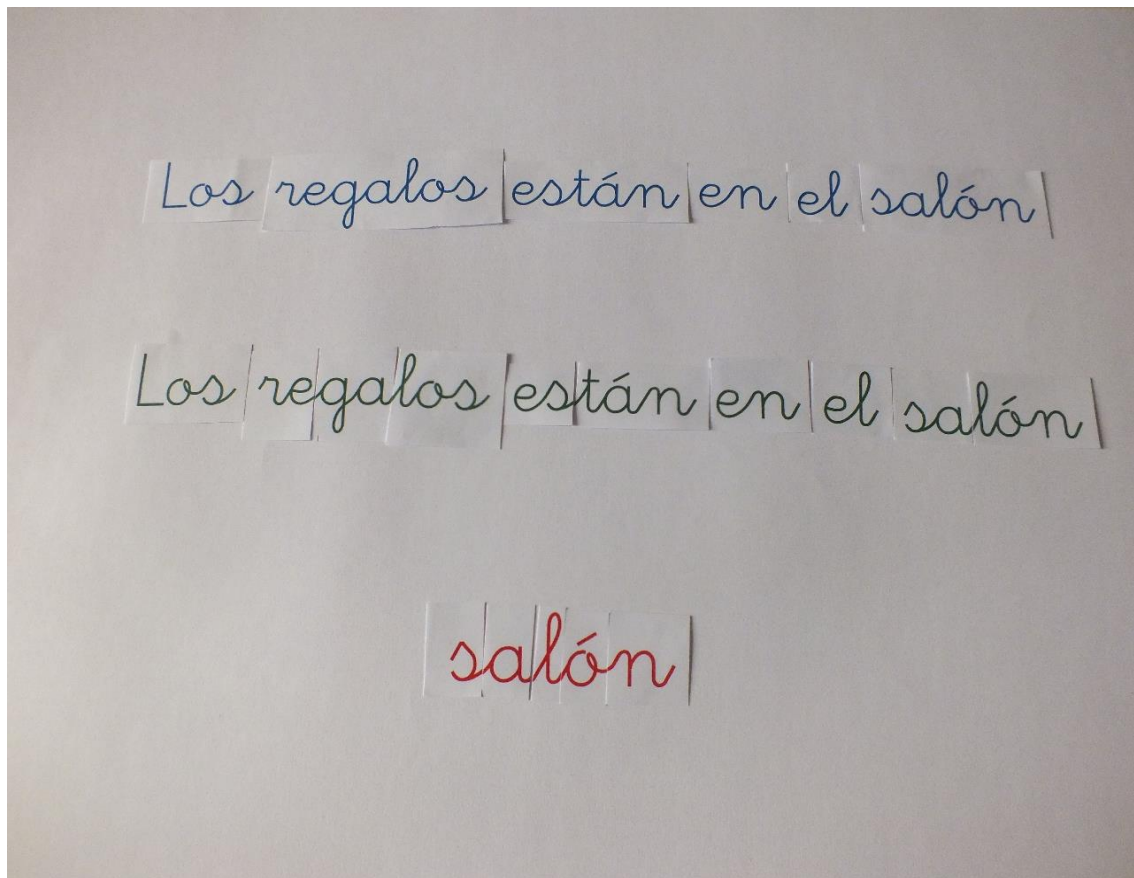 Los regalos están en el salón
Los regalos están en el salón
salón